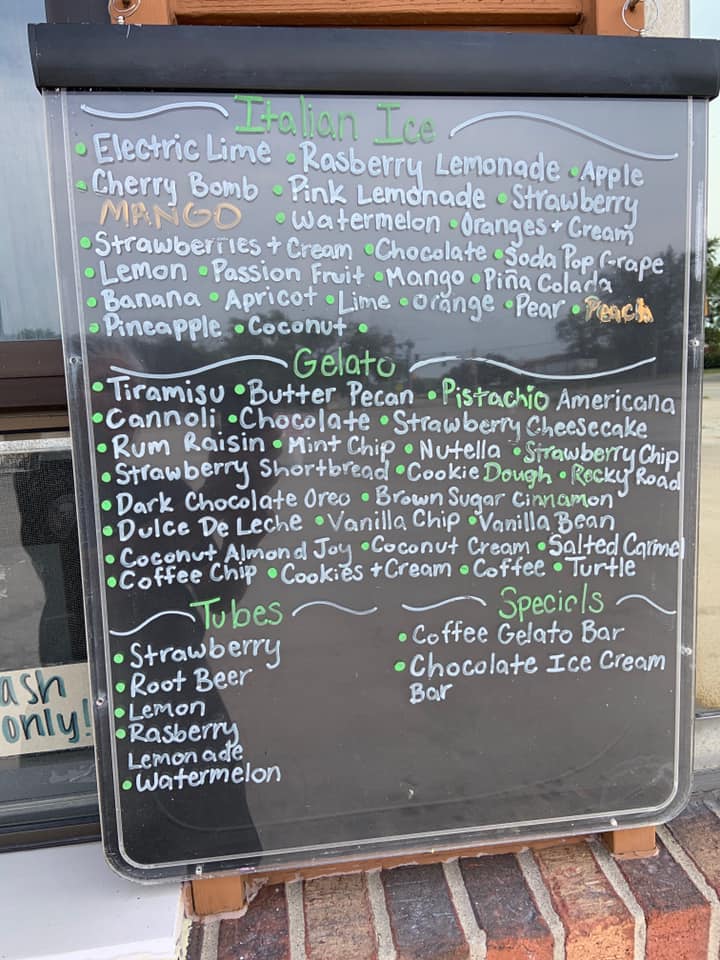 Italian Ice
• Electric Lime • Rasberry Lemonade • Apple
• Cherry Bomb • Pink Lemonade • Strawberry
MANGO • Watermelon • Oranges + Cream
• Strawberries + Cream • Chocolate • Soda Pop Grape
• Lemon • Passion Fruit • Mango • Piña Colada
• Banana • Apricot • Lime • orange • Pear • Peach
• Pineapple • Coconut •
Gelato
• Tiramisu • Butter Pecan • Pistachio Americana
• Cannoli • Chocolate • Strawberry Cheesecake
• Rum Raisin • Mint Chip • Nutella • Strawberry Chip
• Strawberry Shortbread • Cookie Dough • Rocky Road
• Dark Chocolate Oreo • Brown Sugar Cinnamon
• Dulce De Leche • Vanilla Chip • Vanilla Bean
• Coconut Almond Joy • Coconut Cream • Salted Carmel
• Coffee Chip • Cookies + Cream • Coffee • Turtle
Tubes
• Strawberry
• Root Beer
• Lemon
• Rasberry
Lemonade
• Watermelon
Specials
• Coffee Gelato Bar
• Chocolate Ice Cream
Bar
ash
only!